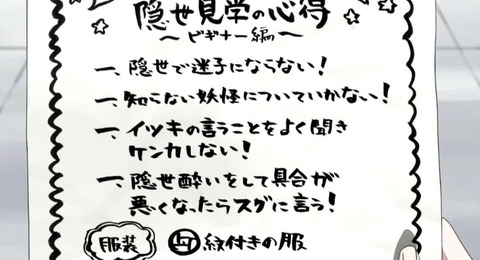 隠世見学の心得
〜ビギナー編〜
一、隠世で迷子にならない!
一、知らない妖怪についていかない!
一、イツキの言うことをよく聞き
ケンカしない!
一、隠世酔いをして具合が
悪くなったらスグに言う!
服装 紋付きの服